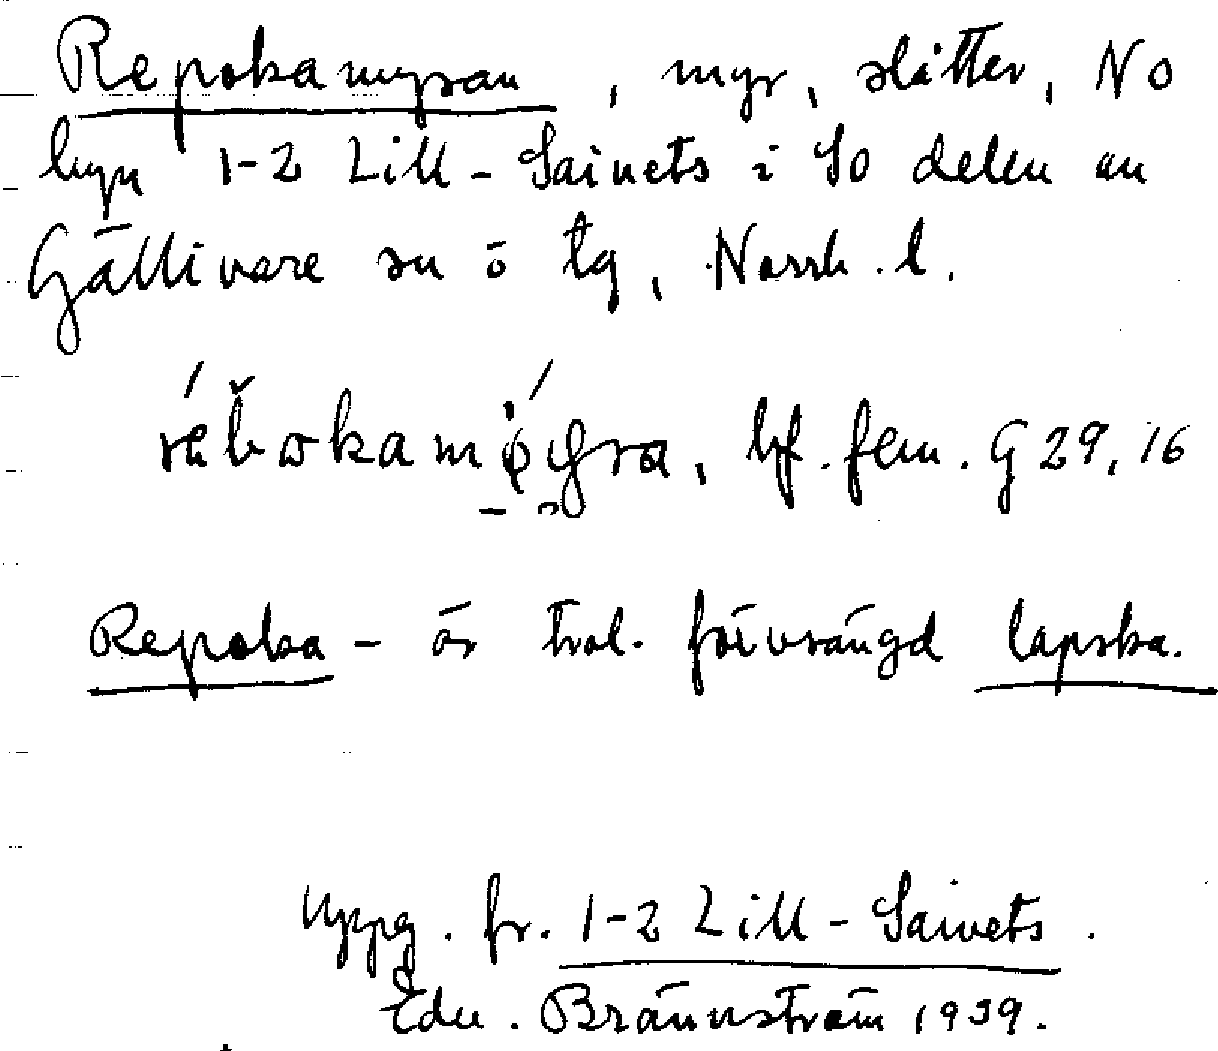 Repokamyran, myr, slåtter, NO
byn 1-2 Lill-Saivets i SO delen av
Gällivare sn o tg, Norrb. l.
bf. fem. G 29, 16
Repoka - är trol. förvrängd lapska.
Uppg. fr. 1-2 Lill-Saivets.
Edv. Brännström 1939.